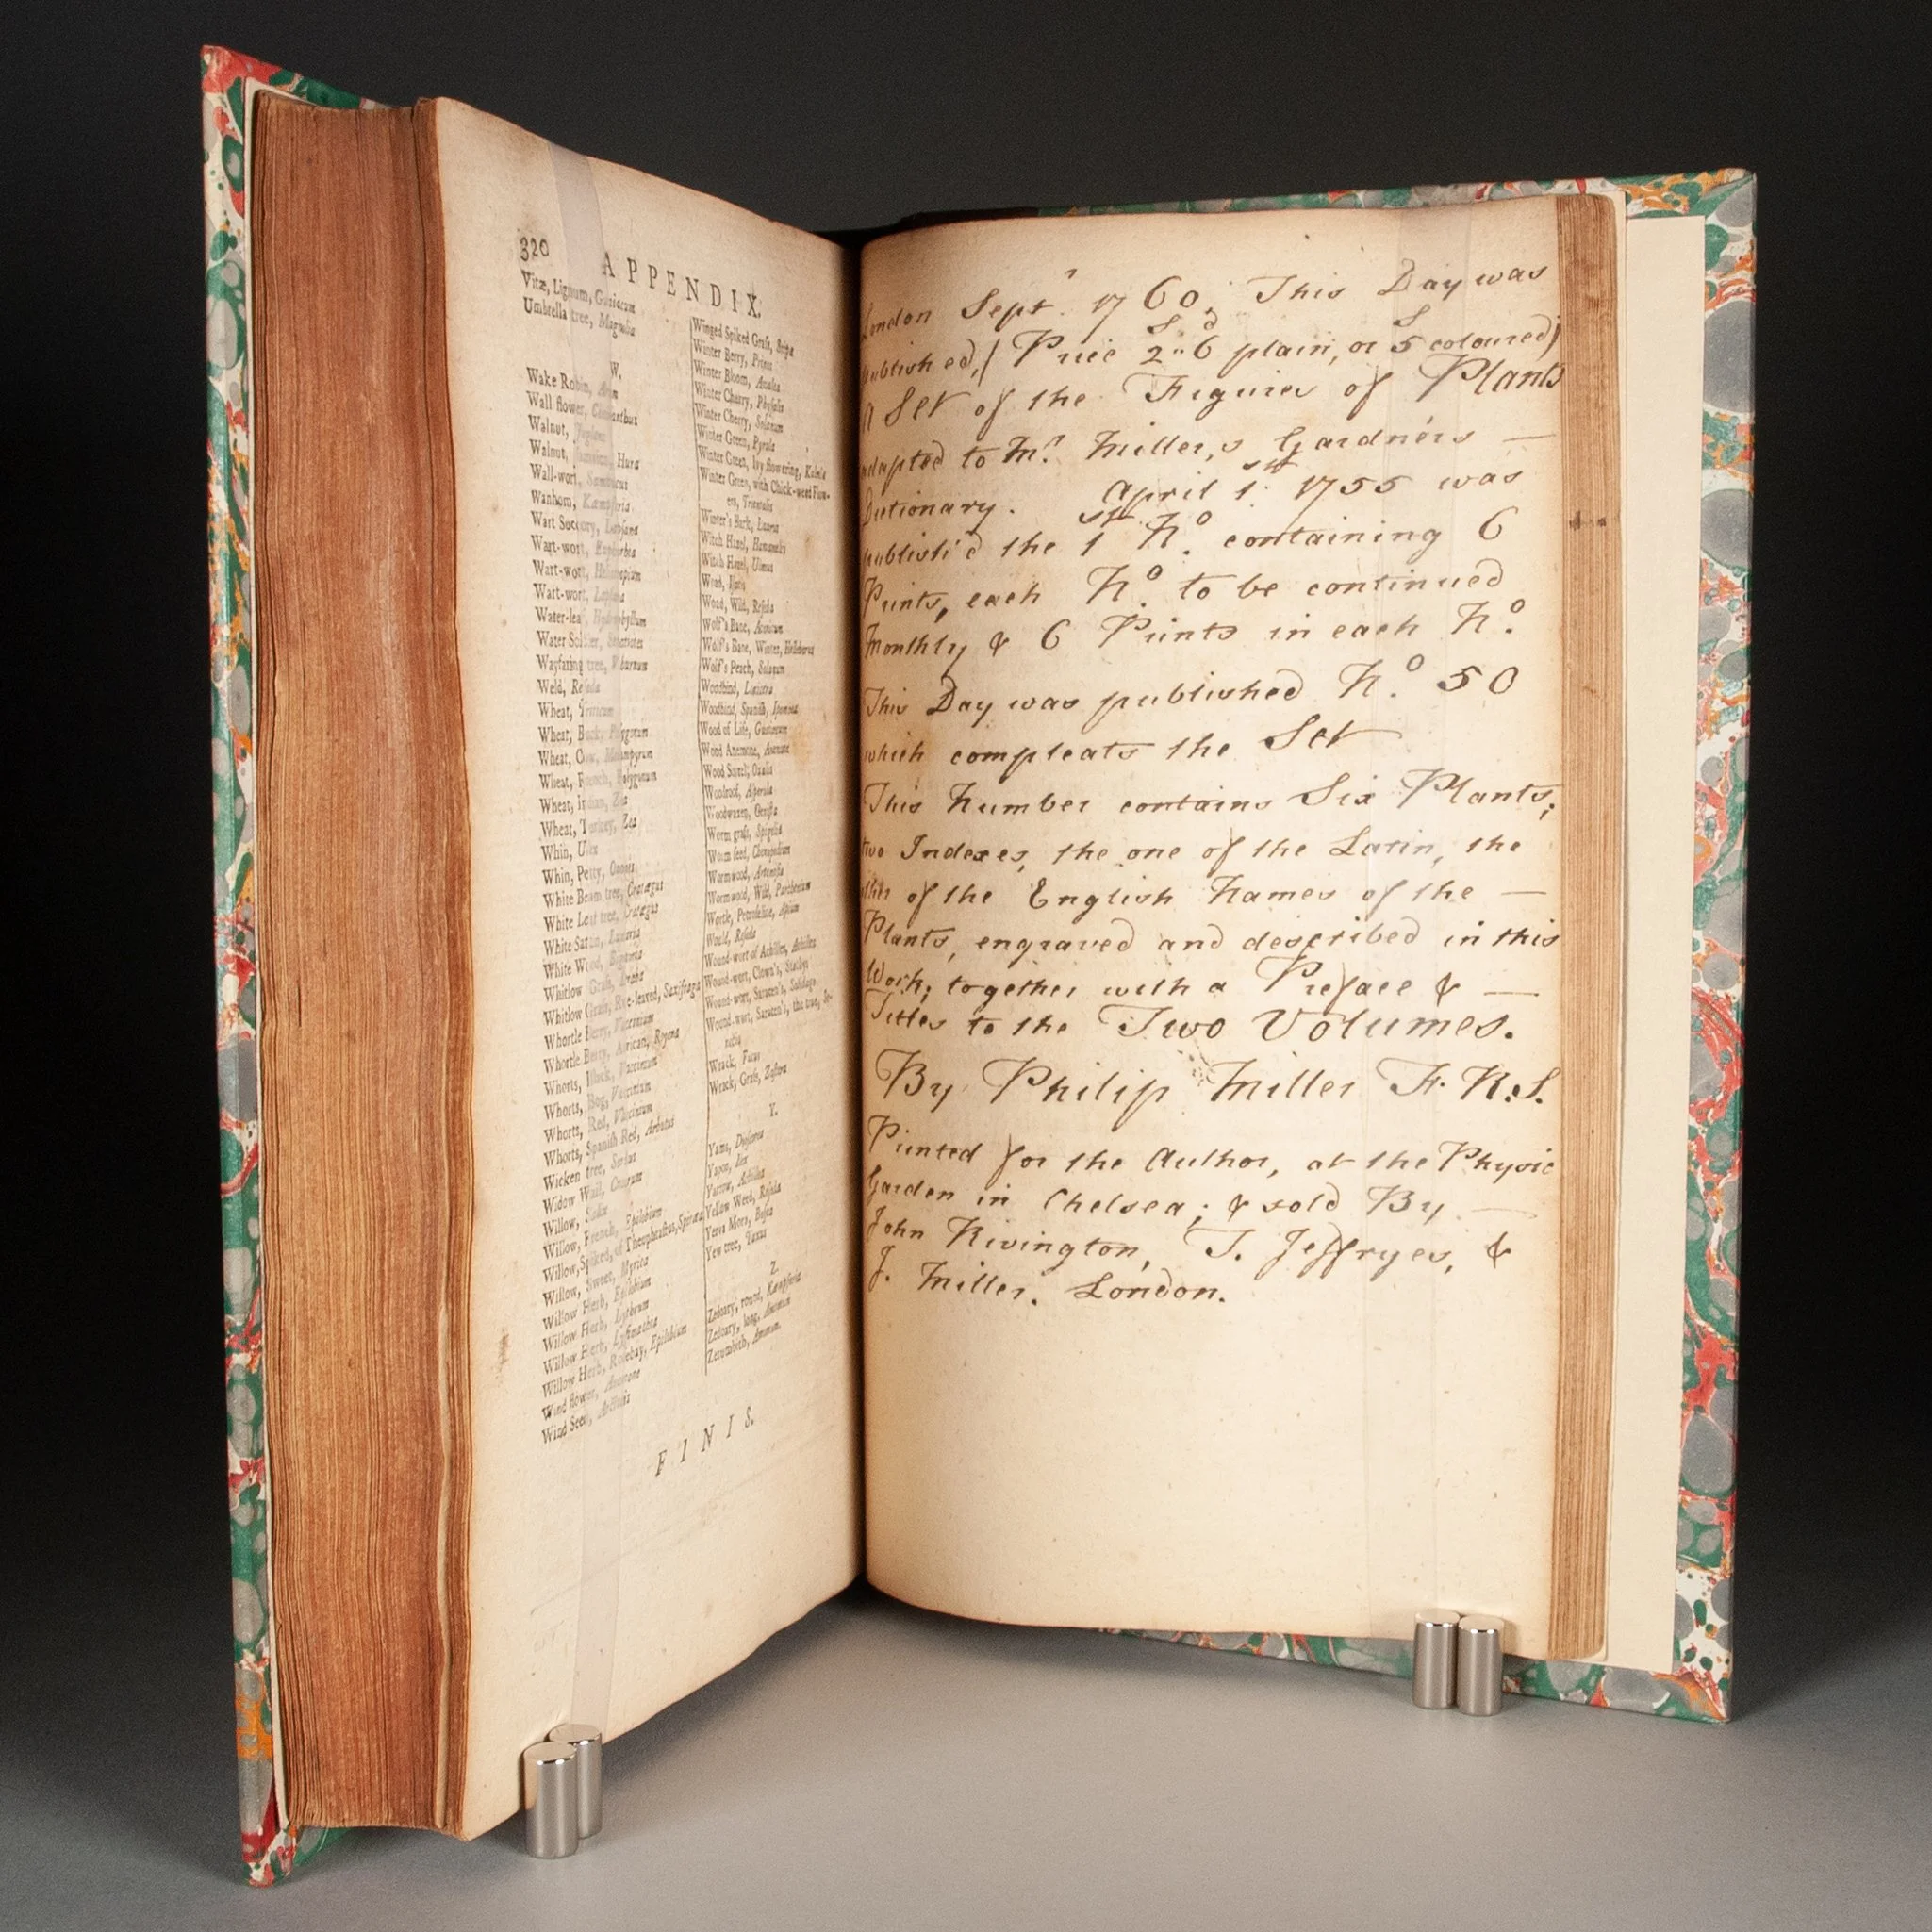 320
APPENDIX.
Vitæ, Lignum, Guaiacum
Umbrella tree, Magnolia
W.
Wake Robin, Arum
Wall flower,
Walnut,
Walnut, Hura
Wall-wort, Sambucus
Wanhom, Kæmpferia
Wart Succory, Lapsana
Wart-wort, Euphorbia
Wart-wort, Heliotropium
Wart-wort, Lapsana
Water-leaf, Hydrophyllum
Water Soldier, Stratiotes
Wayfaring tree, Viburnum
Weld, Reseda
Wheat, Triticum
Wheat, Buck, Polygonum
Wheat, Cow, Melampyrum
Wheat, French, Polygonum
Wheat, Indian, Zea
Wheat, Turkey, Zea
Whin, Ulex
Whin, Petty, Ononis
White Beam tree, Cratægus
White Leaf tree, Cratægus
White Satin, Lunaria
White Wood, Bignonia
Whitlow Grass, Draba
Whitlow Grass, Rue-leaved, Saxifraga
Whortle Berry, Vaccinium
Whortle Berry, African, Royena
Whorts, Black, Vaccinium
Whorts, Bog, Vaccinium
Whorts, Red, Vaccinium
Whorts, Spanish Red, Arbutus
Wicken tree, Sorbus
Widow Wail, Cneorum
Willow, Salix
Willow, French, Epilobium
Willow, Spiked, of Theophrastus, Spiræa
Willow, Sweet, Myrica
Willow Herb, Epilobium
Willow Herb, Lythrum
Willow Herb, Lysimachia
Willow Herb, Rosebay, Epilobium
Wind flower, Anemone
Wind Seed, Arctotis
Winged Spiked Grass, Stipa
Winter Berry, Prinos
Winter Bloom, Azalea
Winter Cherry, Physalis
Winter Cherry, Solanum
Winter Green, Pyrola
Winter Green, Ivy flowering, Kalmia
Winter Green, with Chick-weed Flow-
ers, Trientalis
Winter's Bark, Laurus
Witch Hazel, Hamamelis
Witch Hazel, Ulmus
Woad, Isatis
Woad, Wild, Reseda
Wolf's Bane, Aconitum
Wolf's Bane, Winter, Helleborus
Wolf's Peach, Solanum
Woodbind, Lonicera
Woodbind, Spanish, Ipomœa
Wood of Life, Guaiacum
Wood Anemone, Anemone
Wood Sorrel, Oxalis
Woodroof, Asperula
Woodwaxen, Genista
Worm grass, Spigelia
Worm seed, Chenopodium
Wormwood, Artemisia
Wormwood, Wild, Parthenium
Wortle, Petroselini, Apium
Would, Reseda
Wound-wort of Achilles, Achillea
Wound-wort, Clown's, Stachys
Wound-wort, Saracen's, Solidago
Wound-wort, Saracen's, the true, Se-
necio
Wrack, Fucus
Wrack, Grass, Zostera
Y.
Yams, Dioscorea
Yapon, Ilex
Yarrow, Achillea
Yellow Weed, Reseda
Yerva Mora, Bosea
Yew tree, Taxus
Z.
Zedoary, round, Kæmpferia
Zedoary, long, Amomum
Zerumbith, Amomum.
FINIS.
London Sept.r 1760. This Day was
published, (Price 2s"6d plain, or 5s coloured)
A Set of the Figures of Plants
adapted to Mr. Miller,s Gardners —
Dictionary. April 1st. 1755 was
publish'd the 1st No. containing 6
Prints, each No. to be continued
Monthly & 6 Prints in each No.
This Day was published No. 50
which compleats the Set
This Number contains Six Plants;
two Indexes, the one of the Latin, the
other of the English Names of the —
Plants, engraved and described in this
Work; together with a Preface & —
Titles to the Two Volumes.
By Philip Miller F.R.S.
Printed for the Author, at the Physic
Garden in Chelsea; & sold By —
John Rivington, T. Jeffryes, &
J. Miller. London.